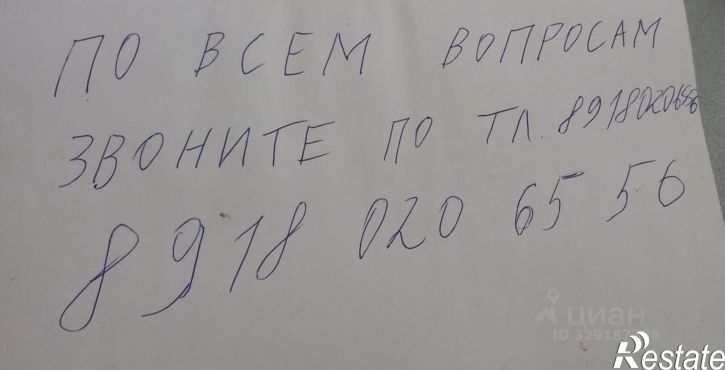 ПО ВСЕМ ВОПРОСАМ
ЗВОНИТЕ ПО ТЛ. 89180206556
8918 020 65 56
циан
Restate